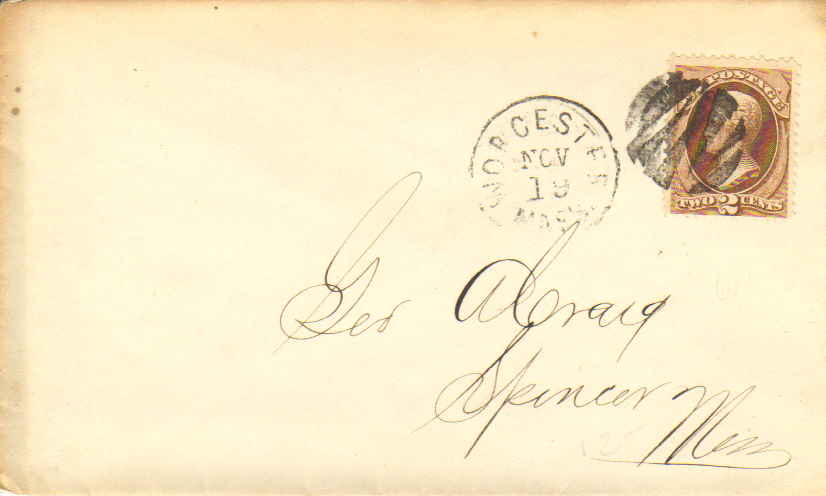 WORCESTER
NOV
19
MASS.
POSTAGE
TWO 2 CENTS
Geo A Craig
Spencer Mass